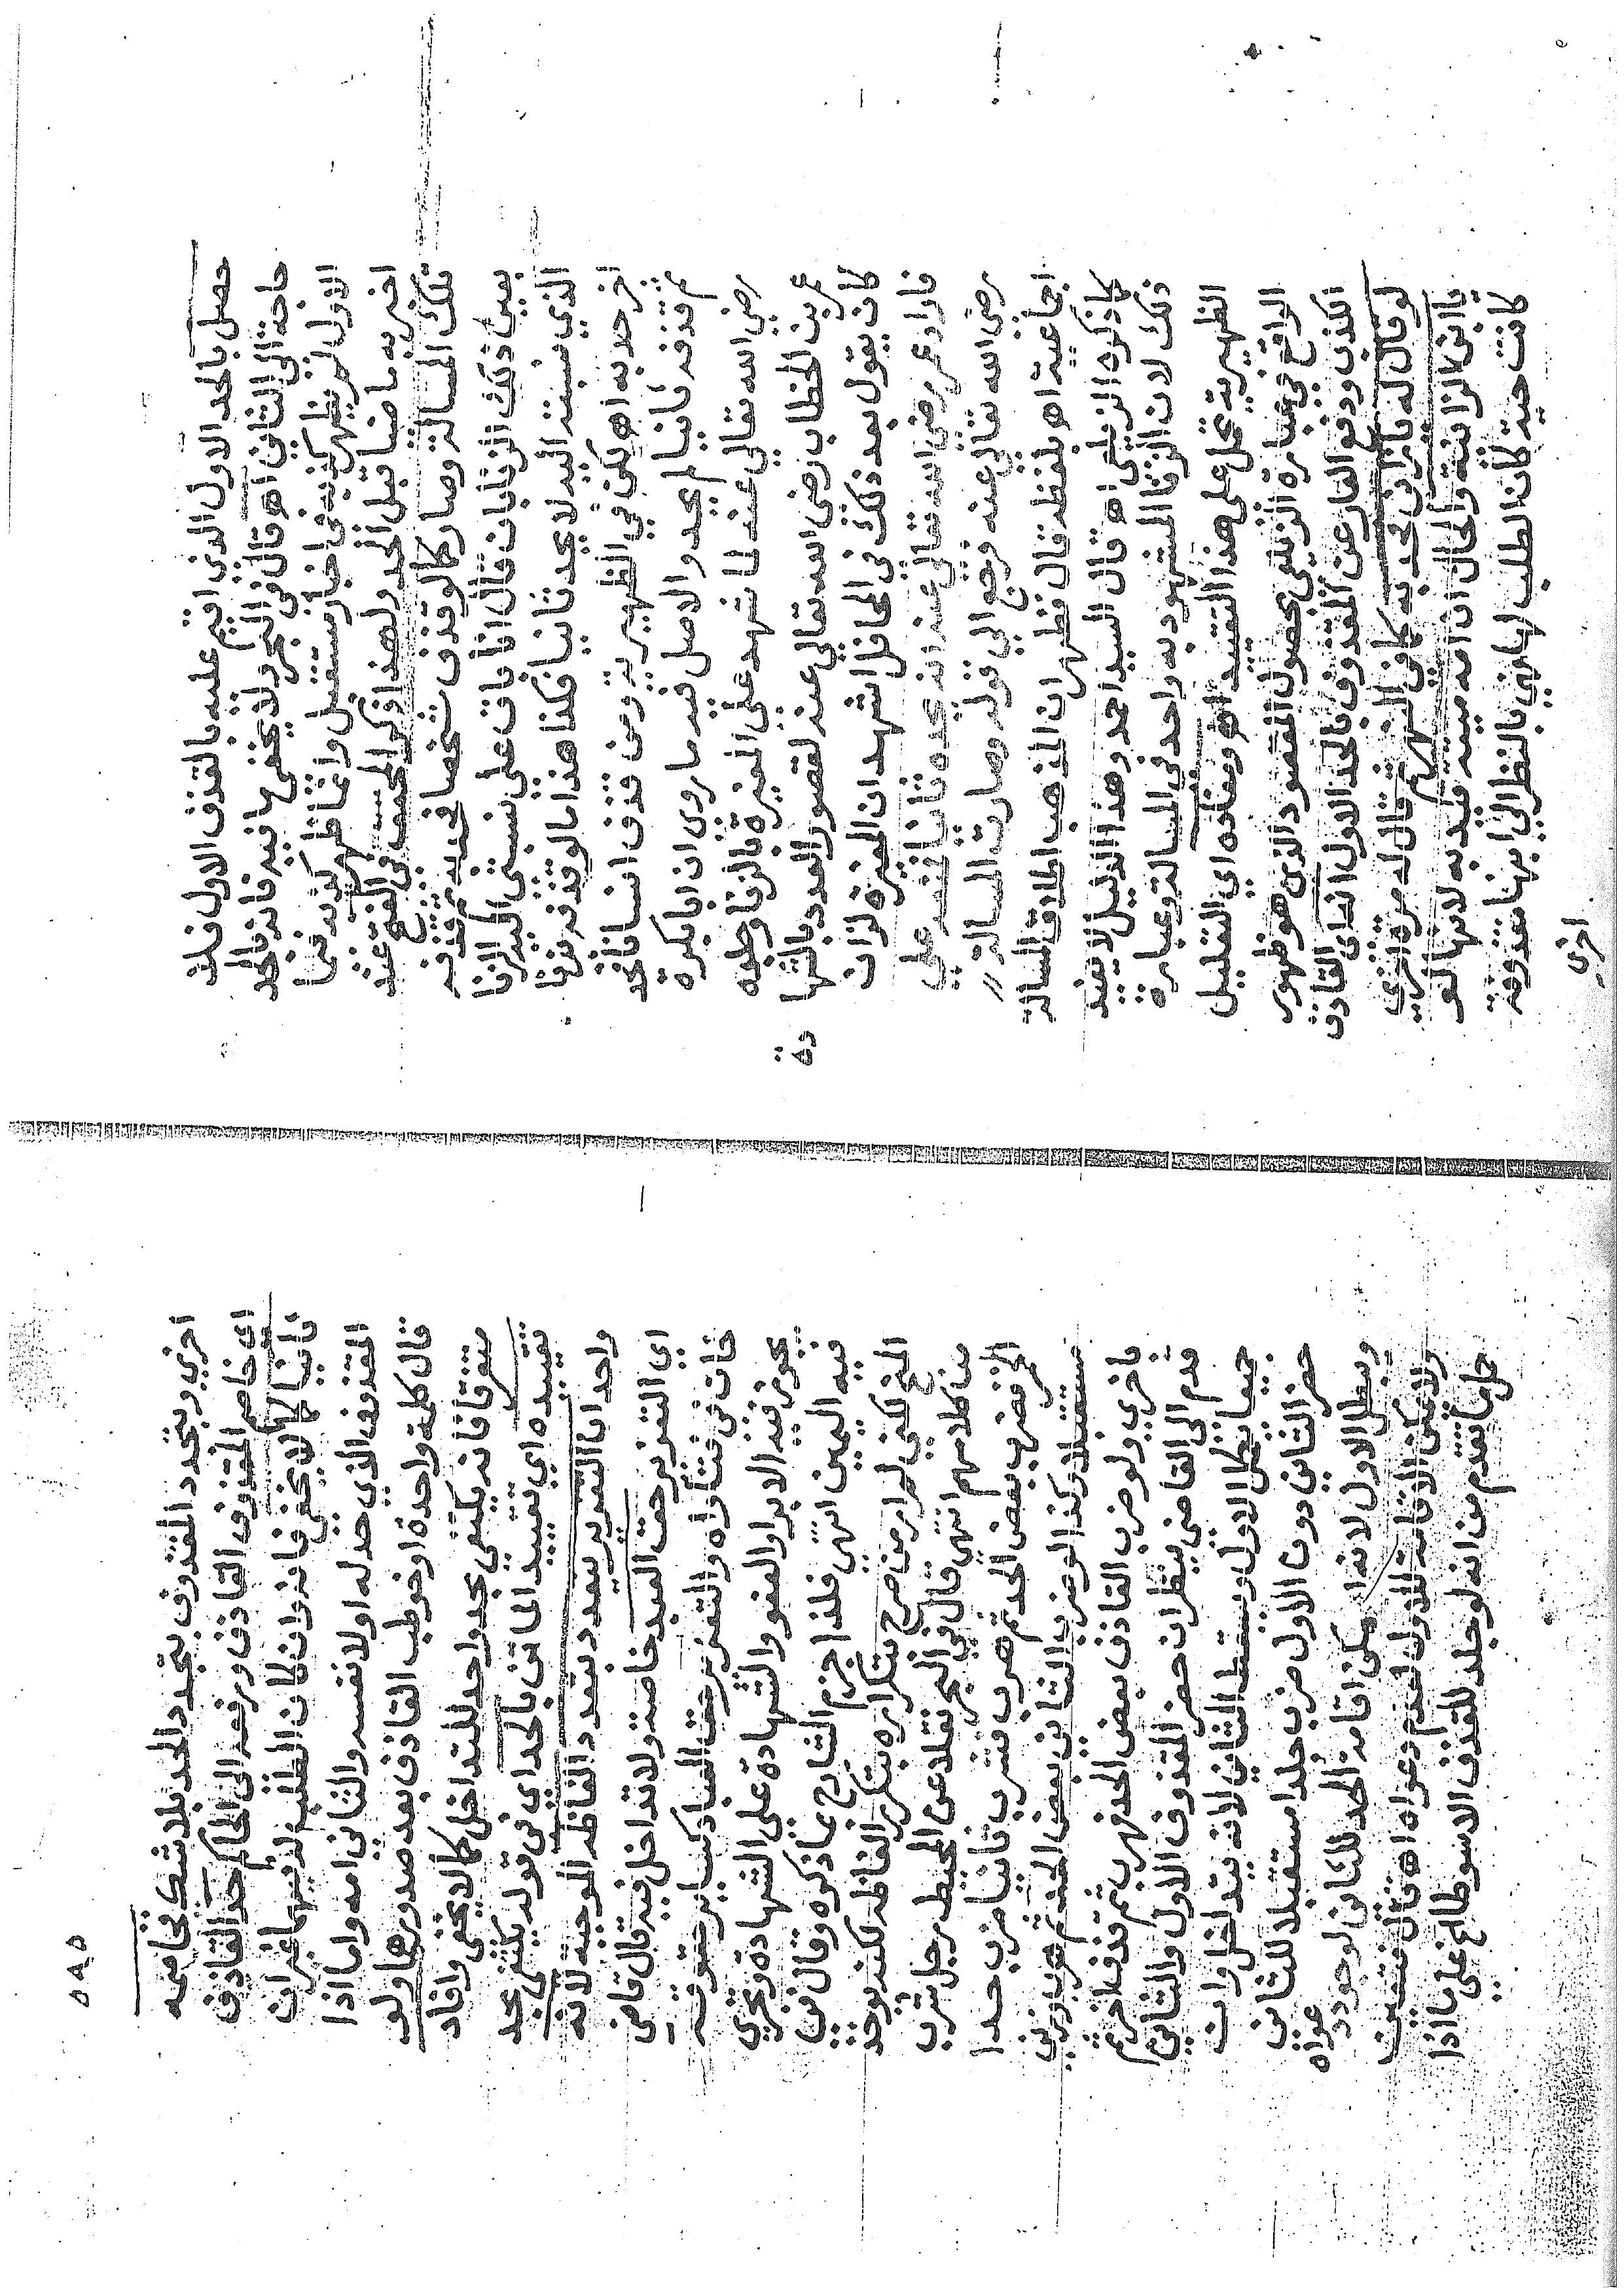 حصل بالحد الاول الذي اقيم عليه بالقذف الاول فلا
حاجة الى الثاني اه قال في البحر ولا يخفى ما فيه فانه بالحد
الاول لم يظهر كذبه في اخبار مستقبل وانما ظهر كذبه فيما
اخبر به ماضيا قبل الحد ولهذا ذكر المحقق في الفتح عند
تلك المسالة وصار كما لو قذف شخصا فحد به ثم قذفه
بعين ذلك الزنا بان قال انا باق على نسبتي اليه الزنا
الذي نسبته اليه لا يحد ثانيا فكذا هذا اما لو قذفه بزنا
اخر حد به اه لكن في الظهيرية ومن قذف انسانا فحد
ثم قذفه ثانيا لم يحد والاصل فيه ما روى ان ابا بكرة
رضي الله تعالى عنه لما شهد على المغيرة بالزنا وجلده
عمر بن الخطاب رضي الله تعالى عنه لقصور العدد بالشها
دة
كان يقول بعد ذلك في المحافل اشهد ان المغيرة لزان
فاراد عمر رضي الله تعالى عنه ان يحده ثانيا فمنعه علي
رضي الله تعالى عنه فرجع الى قوله وصارت المسالة
اجماعية اه بلفظه قال فظهر ان المذهب اطلاق المسالة
كما ذكره الزيلعي اه قال السيد احمد وهذا الدليل لا يفيد
ذلك لان الزنا المشهود به واحد في المسالة وعبارة
الظهيرية تحمل على هذا التقييد اه ومفاده اي التعليل
الواقع في عبارة الزيلعي بحصول المقصود الذي هو ظهور
الكذب ودفع العار عن المقذوف بالحد الاول انه اي القاذف
لو قال له يا زاني فحد به ثم قال له مرة اخرى
يا ابن الزانية والحال ان امه ميتة فحد به كما في النهر لانها لو
كانت حية كان الطلب لها اي بالنظر الى انها مقذوفة
اخرى
٥٩٥
اخرى ويتجدد المقذوف يتجدد الحد بلا شك فخاصمه
اي خاصم المقذوف القاذف ورفعه الى الحاكم حد القاذف
ثانيا كما لا يخفى فانه وان كان الطلب فيهما غير ان
المقذوف الذي حد له اولا نفسه والثاني امه واما اذا
قال كلمة واحدة او خوطب القاذف بعد صدورها ولو
متفرقا فانه يكتفي بحد واحد للتداخل كما لا يخفى وافاد
تقييده اي تقييد الماتن بالحد اي في قوله يكتفي بحد
واحد ان التعزير يتعدد بتعدد الفاظه الموجبة لانه
اي التعزير حق العبد خاصة ولا تداخل فيه قال قاضي
خان في فتاواه والتعزير حق العباد كسائر حقوقه
يجوز فيه الابرا والعفو والشهادة على الشهادة وتجري
فيه اليمين انتهى فلذا جزم الشارح بما ذكره وقال في
المنح لكني لم ار من صرح بتكراره بتكرير الفاظه لكنه يوخذ
من كلامهم انتهى قال في البحر نقلا عن المحيط رجل شرب
الخمر فضرب بعض الحد ثم هرب فشرب ثانيا ضرب حدا
مستقبلا وكذا لو ضرب الزاني بعض الحد ثم هرب فزنى
باخرى ولو ضرب القاذف بعض الحد فهرب ثم قذف اخر ثم
قدم الى القاضي ينظر ان حضر المقذوف الاول والثاني
جميعا يكمل الاول ويسقط الثاني لانه يتداخل وان
حضر الثاني دون الاول ضرب جلدا مستقبلا للثاني
ويبطل الاول لانه امكن اقامة الحد للثاني لوجود د
عواه
ولا يمكن الاقامة للاول لعدم دعواه اه قال فتعين
حمل ما تقدم من انه لو جلد للقذف الا سوطا الخ على ما اذا